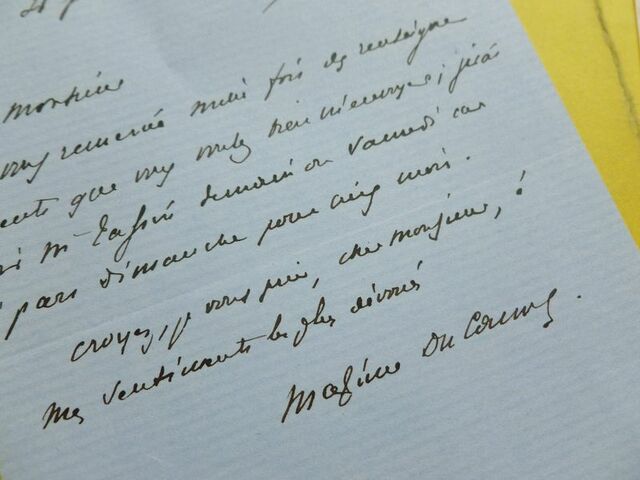 Monsieur
vous remercie mille fois des renseigne
ments que vous voulez bien m'envoyer; j'irai
voir Mr Tassin demain ou Samedi car
je pars Dimanche pour cinq mois.
croyez, je vous prie, cher Monsieur, à
mes sentiments les plus dévoués
Maxime Du Camp.